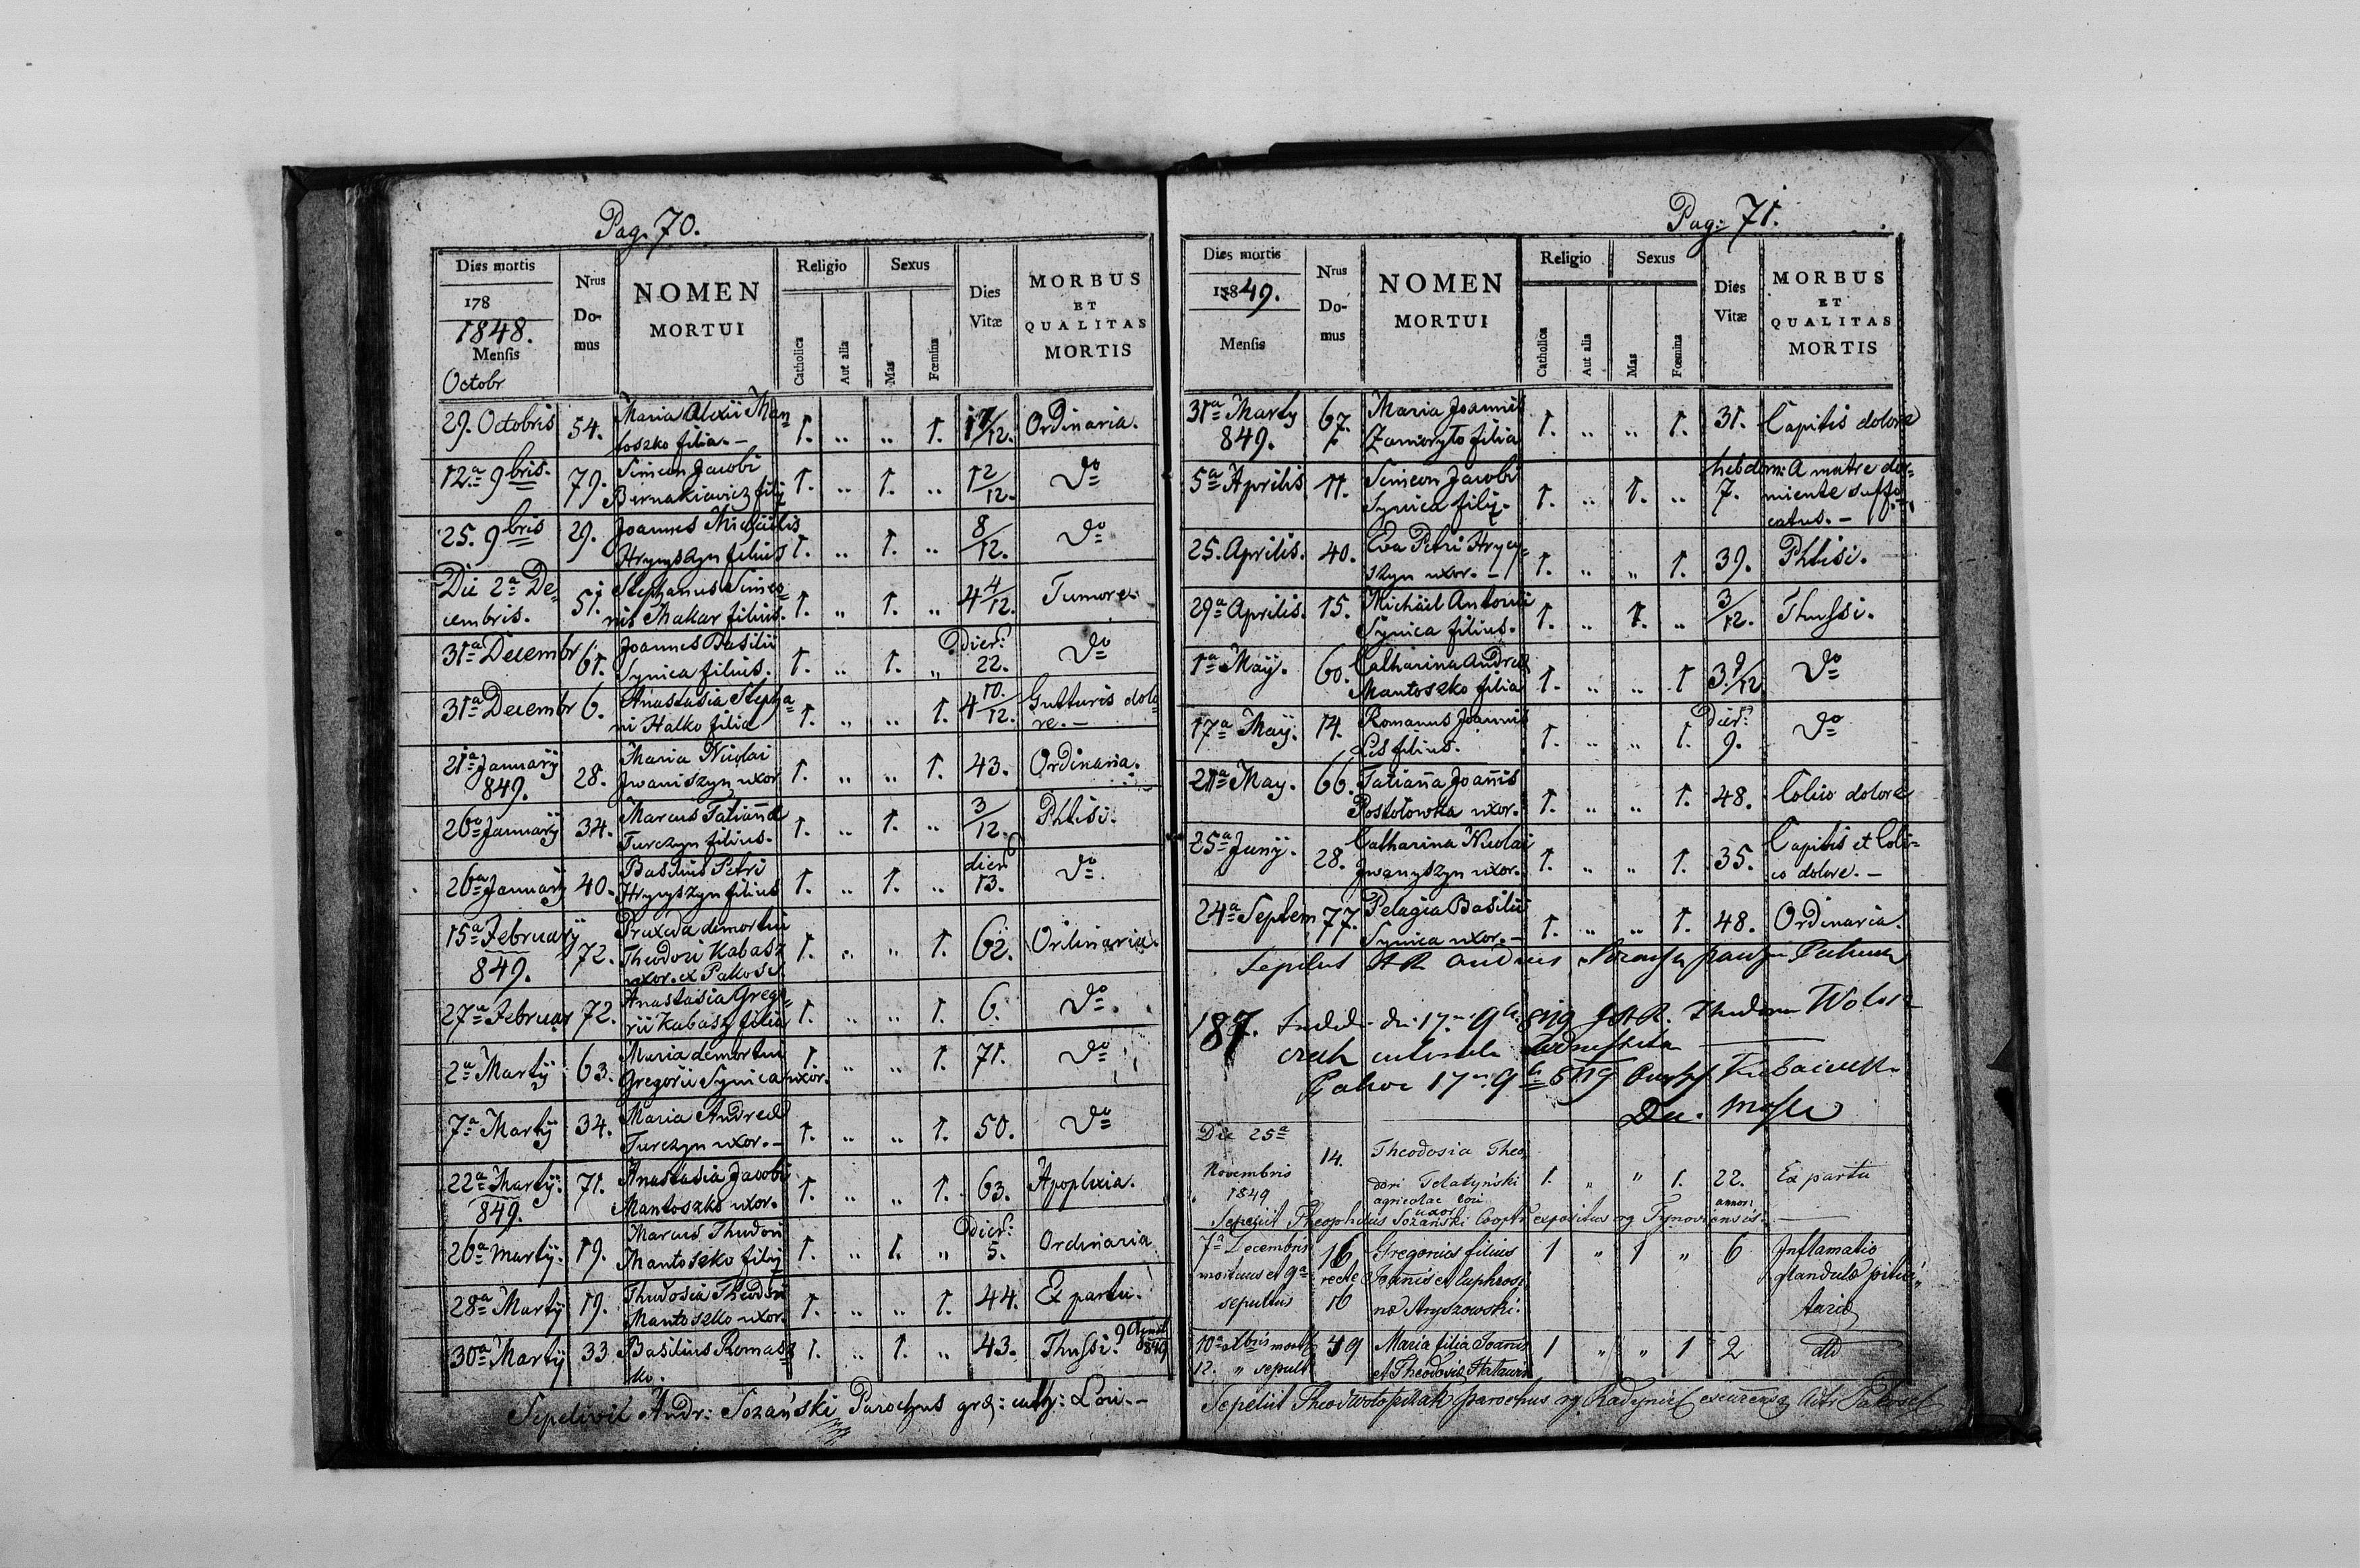 Pag. 70.
Dies mortis
178
1848.
Mensis
Octobr
Nrus Do-mus
NOMEN MORTUI
Religio
Catholica
Aut alia
Sexus
Mas
Fœmina
Dies Vitæ
MORBUS ET QUALITAS MORTIS
29. Octobris 54. Maria Alexii Man 1. .. .. 1. 11/12. Ordinaria.
toszko filia. -
12.a 9bris. 79. Simeon Jacobi 1. .. 1. .. 12/12. do
Bernakiewicz filii
25. 9bris 29. Joannes Michaelis
Hrynyszyn filius 1. .. 1. .. 8/12. do
Die 2a De= 51. Stephanus Simeo=
cembris. nis Makar filius. 1. .. 1. .. 4 4/12. Tumore.
31a Decembr 61. Joannes Basilii
Synica filius. 1. .. 1. .. dier: 22. do
31a Decembr 6. Anastasia Stepha
ni Halko filia 1. .. .. 1. 4 10/12. Gutturis dolo
re. -
21a Januarÿ 849. 28. Maria Nicolai
Jwaniszyn uxor 1. .. .. 1. 43. Ordinaria.
26a Januarÿ 34. Marcus Tatianæ
Turczyn filius. 1. .. 1. .. 3/12. Phtisi.
26a Januarÿ 40. Basilius Petri
Hrynyszyn filius 1. .. 1. .. dier 13. do
15a Februarÿ 849. 72. Praxeda demortui
Theodori Kabasz
uxor. ex Pakosc. 1. .. .. 1. 62. Ordinaria.
27a Februar 72. Anastasia Grego=
rii Kabasz filia 1. .. .. 1. 6. do
2a Martÿ 63. Maria demortui
Gregorii Synica uxor. 1. .. .. 1. 71. do
7a Martÿ 34. Maria Andreæ
Turczyn uxor. - 1. .. .. 1. 50. do
22a Martÿ. 849. 71. Anastasia Jacobi
Mantoszko uxor. 1. .. .. 1. 63. Apoplexia.
26a Martÿ. 19. Marcus Theodori
Mantoszko filii 1. .. 1. .. dier: 5. Ordinaria
28a Martÿ 19. Theodosia Theodori
Mantoszko uxor. 1. .. .. 1. 44. Ex partu.
30a Martÿ 33 Basilius Romasz
ko. 1. .. 1. .. 43. Thussi. 849
Sepelivit Andr: Sozański Parochus
Pag: 71.
Dies mortis
1849.
Mensis
Nrus Do-mus
NOMEN MORTUI
Religio
Catholica
Aut alia
Sexus
Mas
Fœmina
Dies Vitæ
MORBUS ET QUALITAS MORTIS
31a Marty 849. 67. Maria Joannis
Zamoryto filia 1. .. .. 1. 31. Capitis dolore
5a Aprilis 11. Simeon Jacobi
Synica filii. 1. .. 1. .. hebdom: 7. A matre dor=
miente suffo=
catus. -
25. Aprilis. 40. Eva Petri Hryny=
szyn uxor. - 1. .. .. 1. 39. Phtisi.
29a Aprilis. 15. Michäil Antonii
Synica filius. 1. .. 1. .. 3/12. Thussi.
1a Maÿ. 60. Catharina Andreæ
Mantoszko filia 1. .. .. 1 3 9/12 do
17a Maÿ. 14. Romanus Joannis
Lis filius. 1. .. .. 1. Dier: 9. do
21a May. 66. Tatiana Joañis
Postołowka uxor. 1. .. .. 1. 48. Colico dolore
25a Junÿ. 28. Catharina Nicolai
Jwanyszyn uxor. 1. .. .. 1. 35. Capitis et Coli=
co dolore. -
24a Septem 77. Pelagia Basilii
Synica uxor. - 1. .. .. 1. 48. Ordinaria.
Die 25a
Novembris
1849
14. Theodosia Theo
dori Telatyński
agricolae loci
uxor 1. " " 1. 22. annor: Ex partu
Sepeliit Theophilus Sozański Coopr expositus Tynoviensis.
7a Decembris
mortuus et 9a
sepultus
16
recte
16
Gregorius filius
Joannis et Euphrosi
næ Stryszowski. 1 " 1 " 6 Inflamatio
glandulæ pitui
tariæ
10a Xbris mort 12. " sepult 19 Maria filia Joannis
et Theodosiæ 1 " " 1 2 dto
Sepeliit parochus